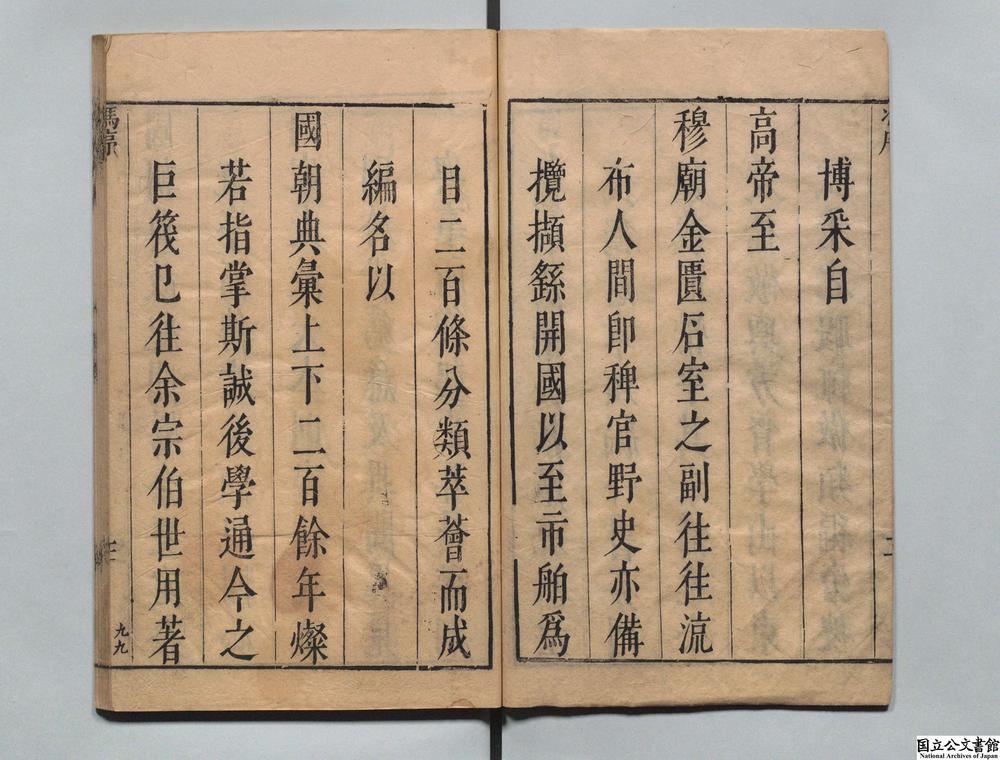 博采自
高帝至
穆廟金匱石室之副往往流
布人間卽稗官野史亦備
攬擷繇開國以至市舶爲
目二百條分類萃薈而成
編名以
國朝典彙上下二百餘年燦
若指掌斯誠後學通今之
巨筏已往余宗伯世用著
馮京
九九
国立公文書館
National Archives of Japan